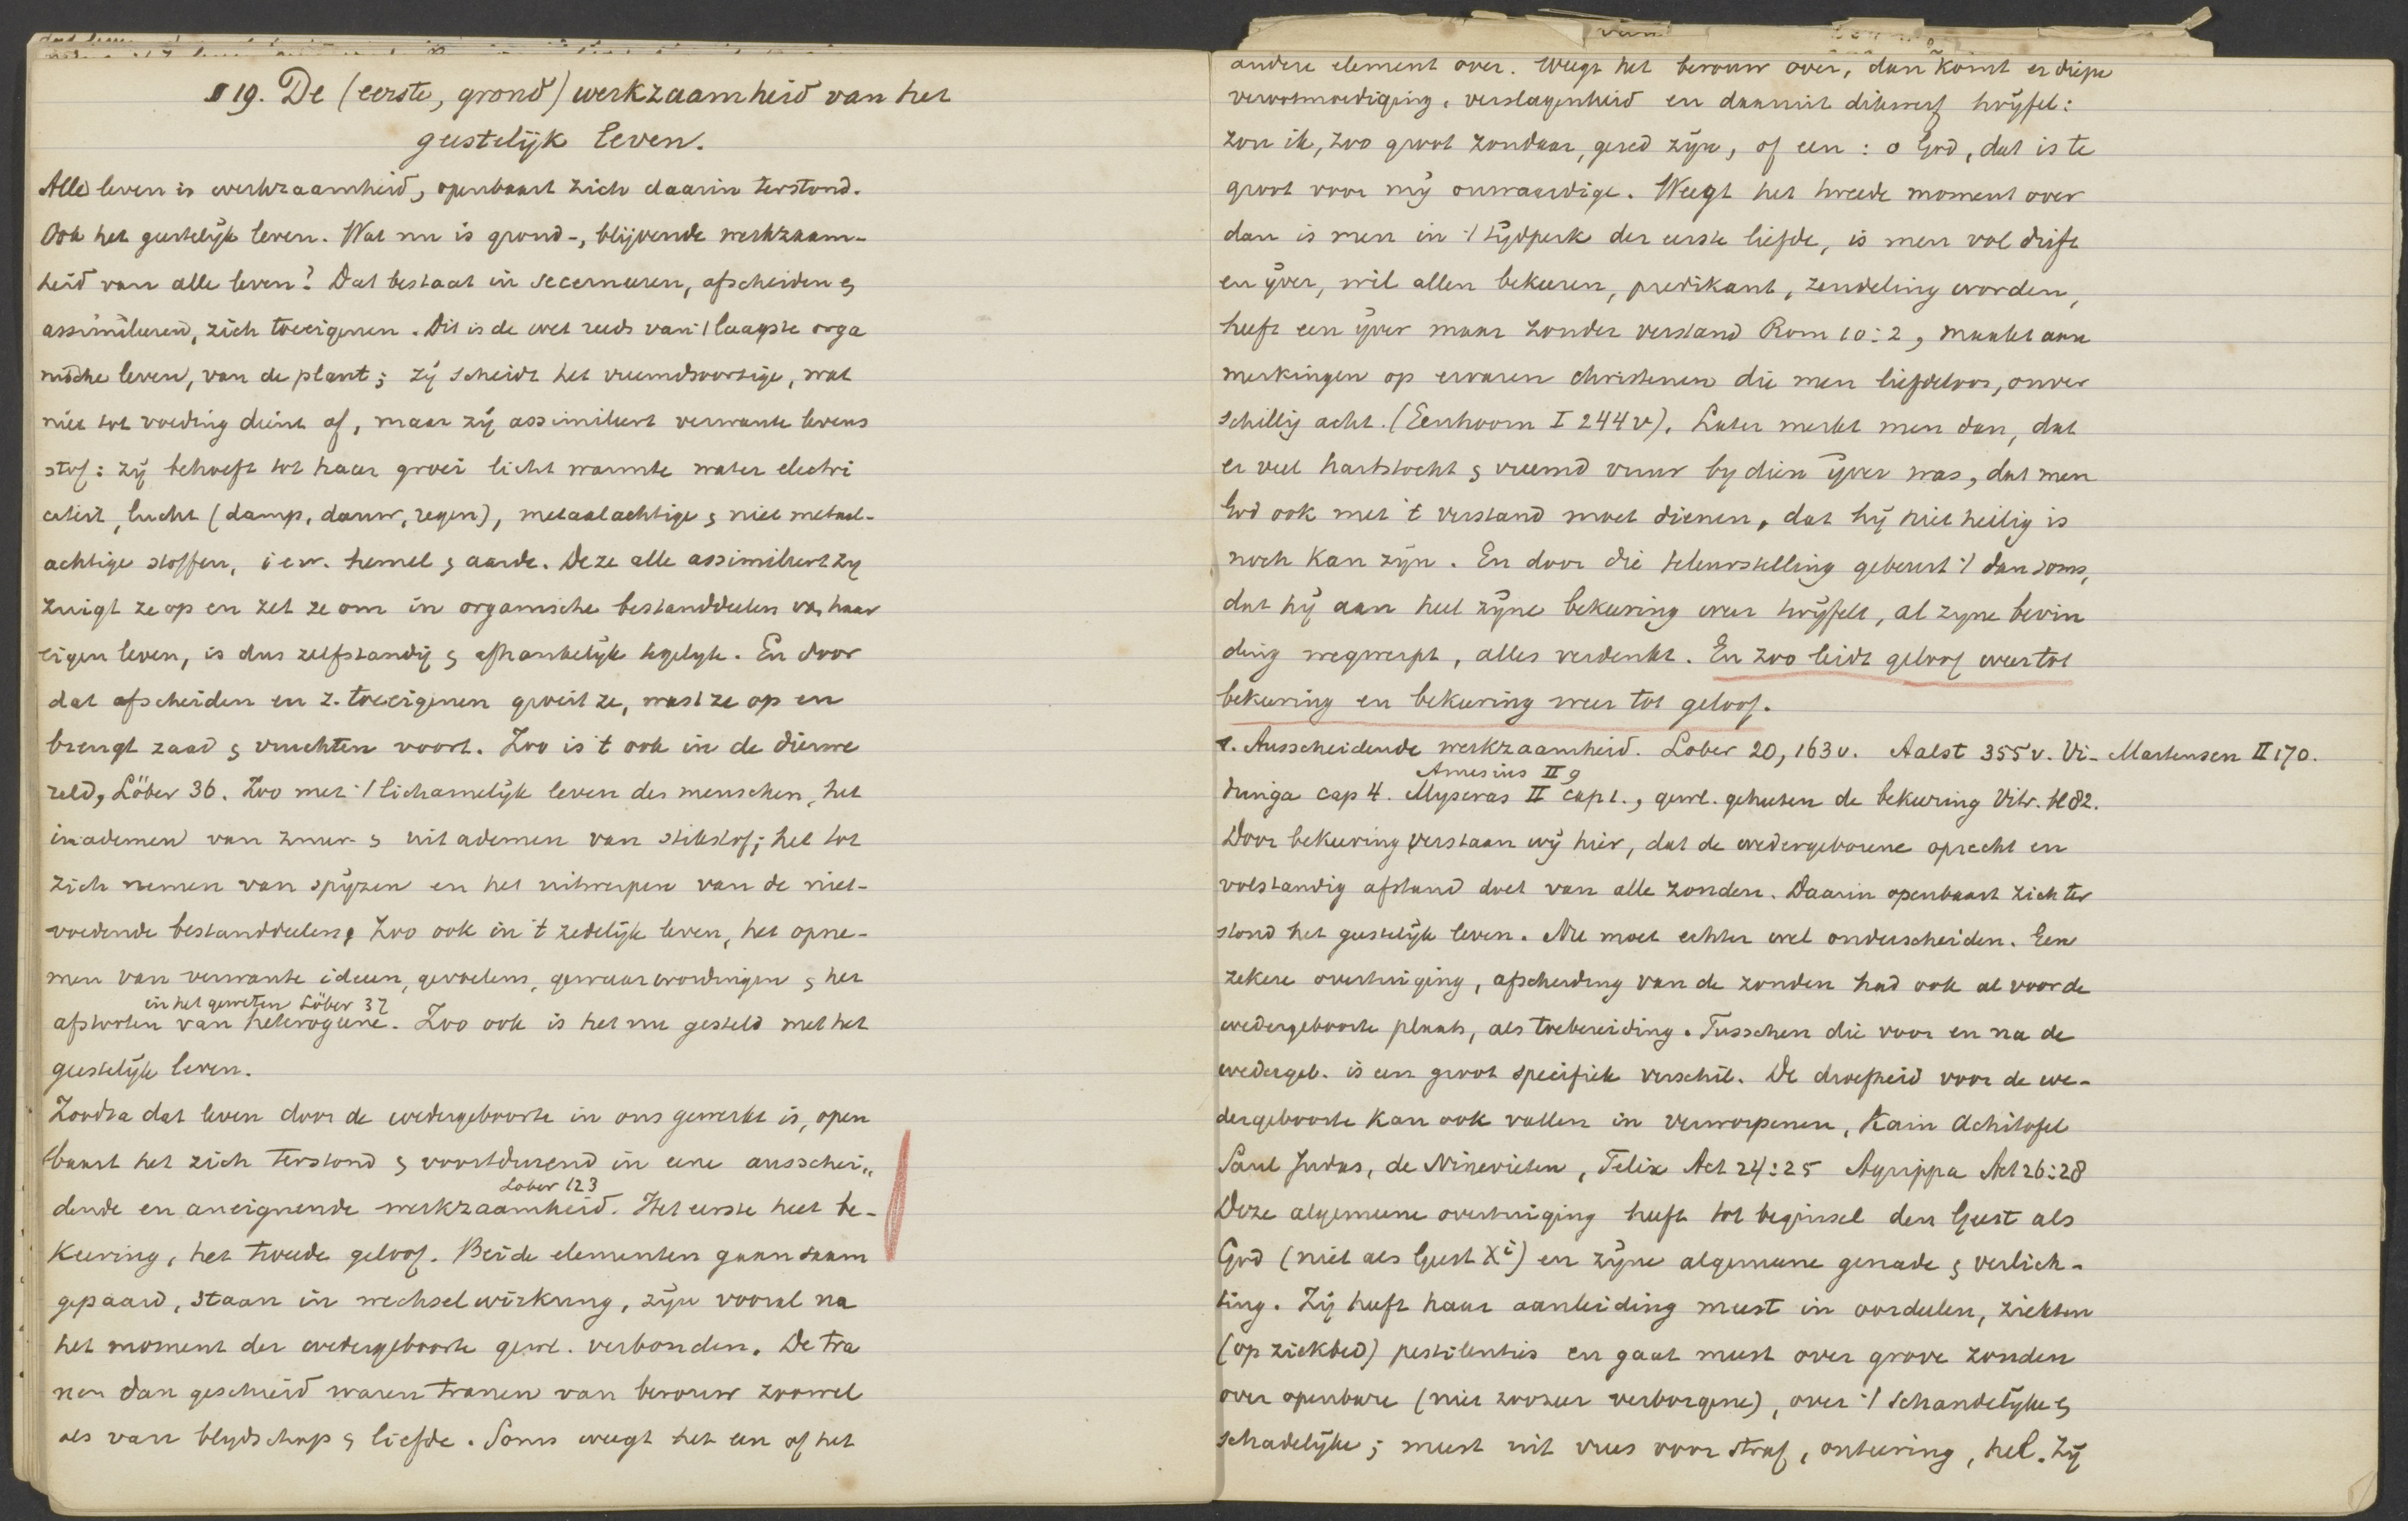 § 19. De (eerste, grond) werkzaamheid van het
geestelijk leven.
Alle leven is werkzaamheid, openbaart zich daarin terstond.
Ook het geestelijk leven. Wat nu is grond-, blijvende werkzaam-
heid van alle leven? Dat bestaat in secerneeren, afscheiden &
assimileeren, zich toeeigenen. Dit is de wet reeds van 't laagste orga
nische leven, van de plant; zij scheidt het vreemdsoortige, wat
niet tot voeding dient af, maar zij assimileert verwante levens
stof: zij behoeft tot haar groei licht warmte water electri
citeit, lucht (damp, dauw, regen), metaalachtige & niet metaal-
achtige stoffen, i e w. hemel & aarde. Deze alle assimileert zij
zuigt ze op en zet ze om in organische bestanddeelen van haar
eigen leven, is dus zelfstandig & afhankelijk tegelijk. En door
dat afscheiden en z. toeeigenen groeit ze, wast ze op en
brengt zaad & vruchten voort. Zoo is 't ook in de dierwe
reld, Löber 36. Zoo met 't lichamelijk leven des menschen, het
inademen van zuur- & uitademen van stikstof; het tot
zich nemen van spijzen en het uitwerpen van de niet-
voedende bestanddeelen. Zoo ook in 't zedelijk leven, het opne-
men van verwante ideeen, gevoelens, gewaarwordingen & het
in het geweten Löber 37
afstooten van heterogeene. Zoo ook is het nu gesteld met het
geestelijk leven.
Zoodra dat leven door de wedergeboorte in ons gewerkt is, open
baart het zich terstond & voortdurend in eene ausschei„
Löber 123
dende en aneignende werkzaamheid. Het eerste heet be-
keering, het tweede geloof. Beide elementen gaan saam
gepaard, staan in wechselwirkung, zijn vooral na
het moment der wedergeboorte gew. verbonden. De tra
nen dan geschreid waren tranen van berouw zoowel
als van blydschap & liefde. Soms weegt het een of het
andere element over. Weegt het berouw over, dan komt er diepe
verootmoediging, verslagenheid en daaruit dikwerf twijfel:
zou ik, zoo groot zondaar, gered zijn, of een: o God, dat is te
groot voor mij onwaardige. Weegt het tweede moment over
dan is men in 't tijdperk der eerste liefde, is men vol drift
en ijver, wil allen bekeeren, predikant, zendeling worden,
heeft een ijver maar zonder verstand Rom 10:2, maakt aan
merkingen op ervaren christenen die men liefdeloos, onver
schillig acht. (Eenhoorn I 244 v). Later merkt men dan, dat
er veel hartstocht & vreemd vuur by dien ijver was, dat men
God ook met 't verstand moet dienen, dat hij niet heilig is
noch kan zijn. En door die teleurstelling gebeurt 't dan soms,
dat hij aan heel zijne bekeering weer twijfelt, al zijne bevin
ding wegwerpt, alles verdenkt. En zoo leidt geloof weer tot
bekeering en bekeering weer tot geloof.
1. Ausscheidende werkzaamheid. Löber 20, 163 v. Aalst 355 v. Vi- Martensen II 170.
Amesius II 9
tringa cap 4. Myseras II cap 1., gew. geheeten de bekeering Vitr. bl 82.
Door bekeering verstaan wij hier, dat de wedergeborene oprecht en
volstandig afstand doet van alle zonden. Daarin openbaart zich ter
stond het geestelijk leven. Me moet echter wel onderscheiden. Eene
zekere overtuiging, afscheiding van de zonden had ook al voor de
wedergeboorte plaats, als toebereiding. Tusschen die voor en na de
wedergeb. is een groot specifiek verschil. De droefheid voor de we-
dergeboorte kan ook vallen in verworpenen, Kain Achitofel
Saul Judas, de Ninevieten, Felix Act 24:25 Agrippa Act 26:28
Deze algemeene overtuiging heeft tot beginsel den Geest als
God (niet als Geest Xi) en zijne algemeene genade & verlich-
ting. Zij heeft haar aanleiding meest in oordeelen, ziekten
(op ziekbed) pestilenties en gaat meest over grove zonden
over openbare (niet zoozeer verborgene), over 't schandelijke &
schadelijke; meest uit vrees voor straf, onteering, hel. Zij